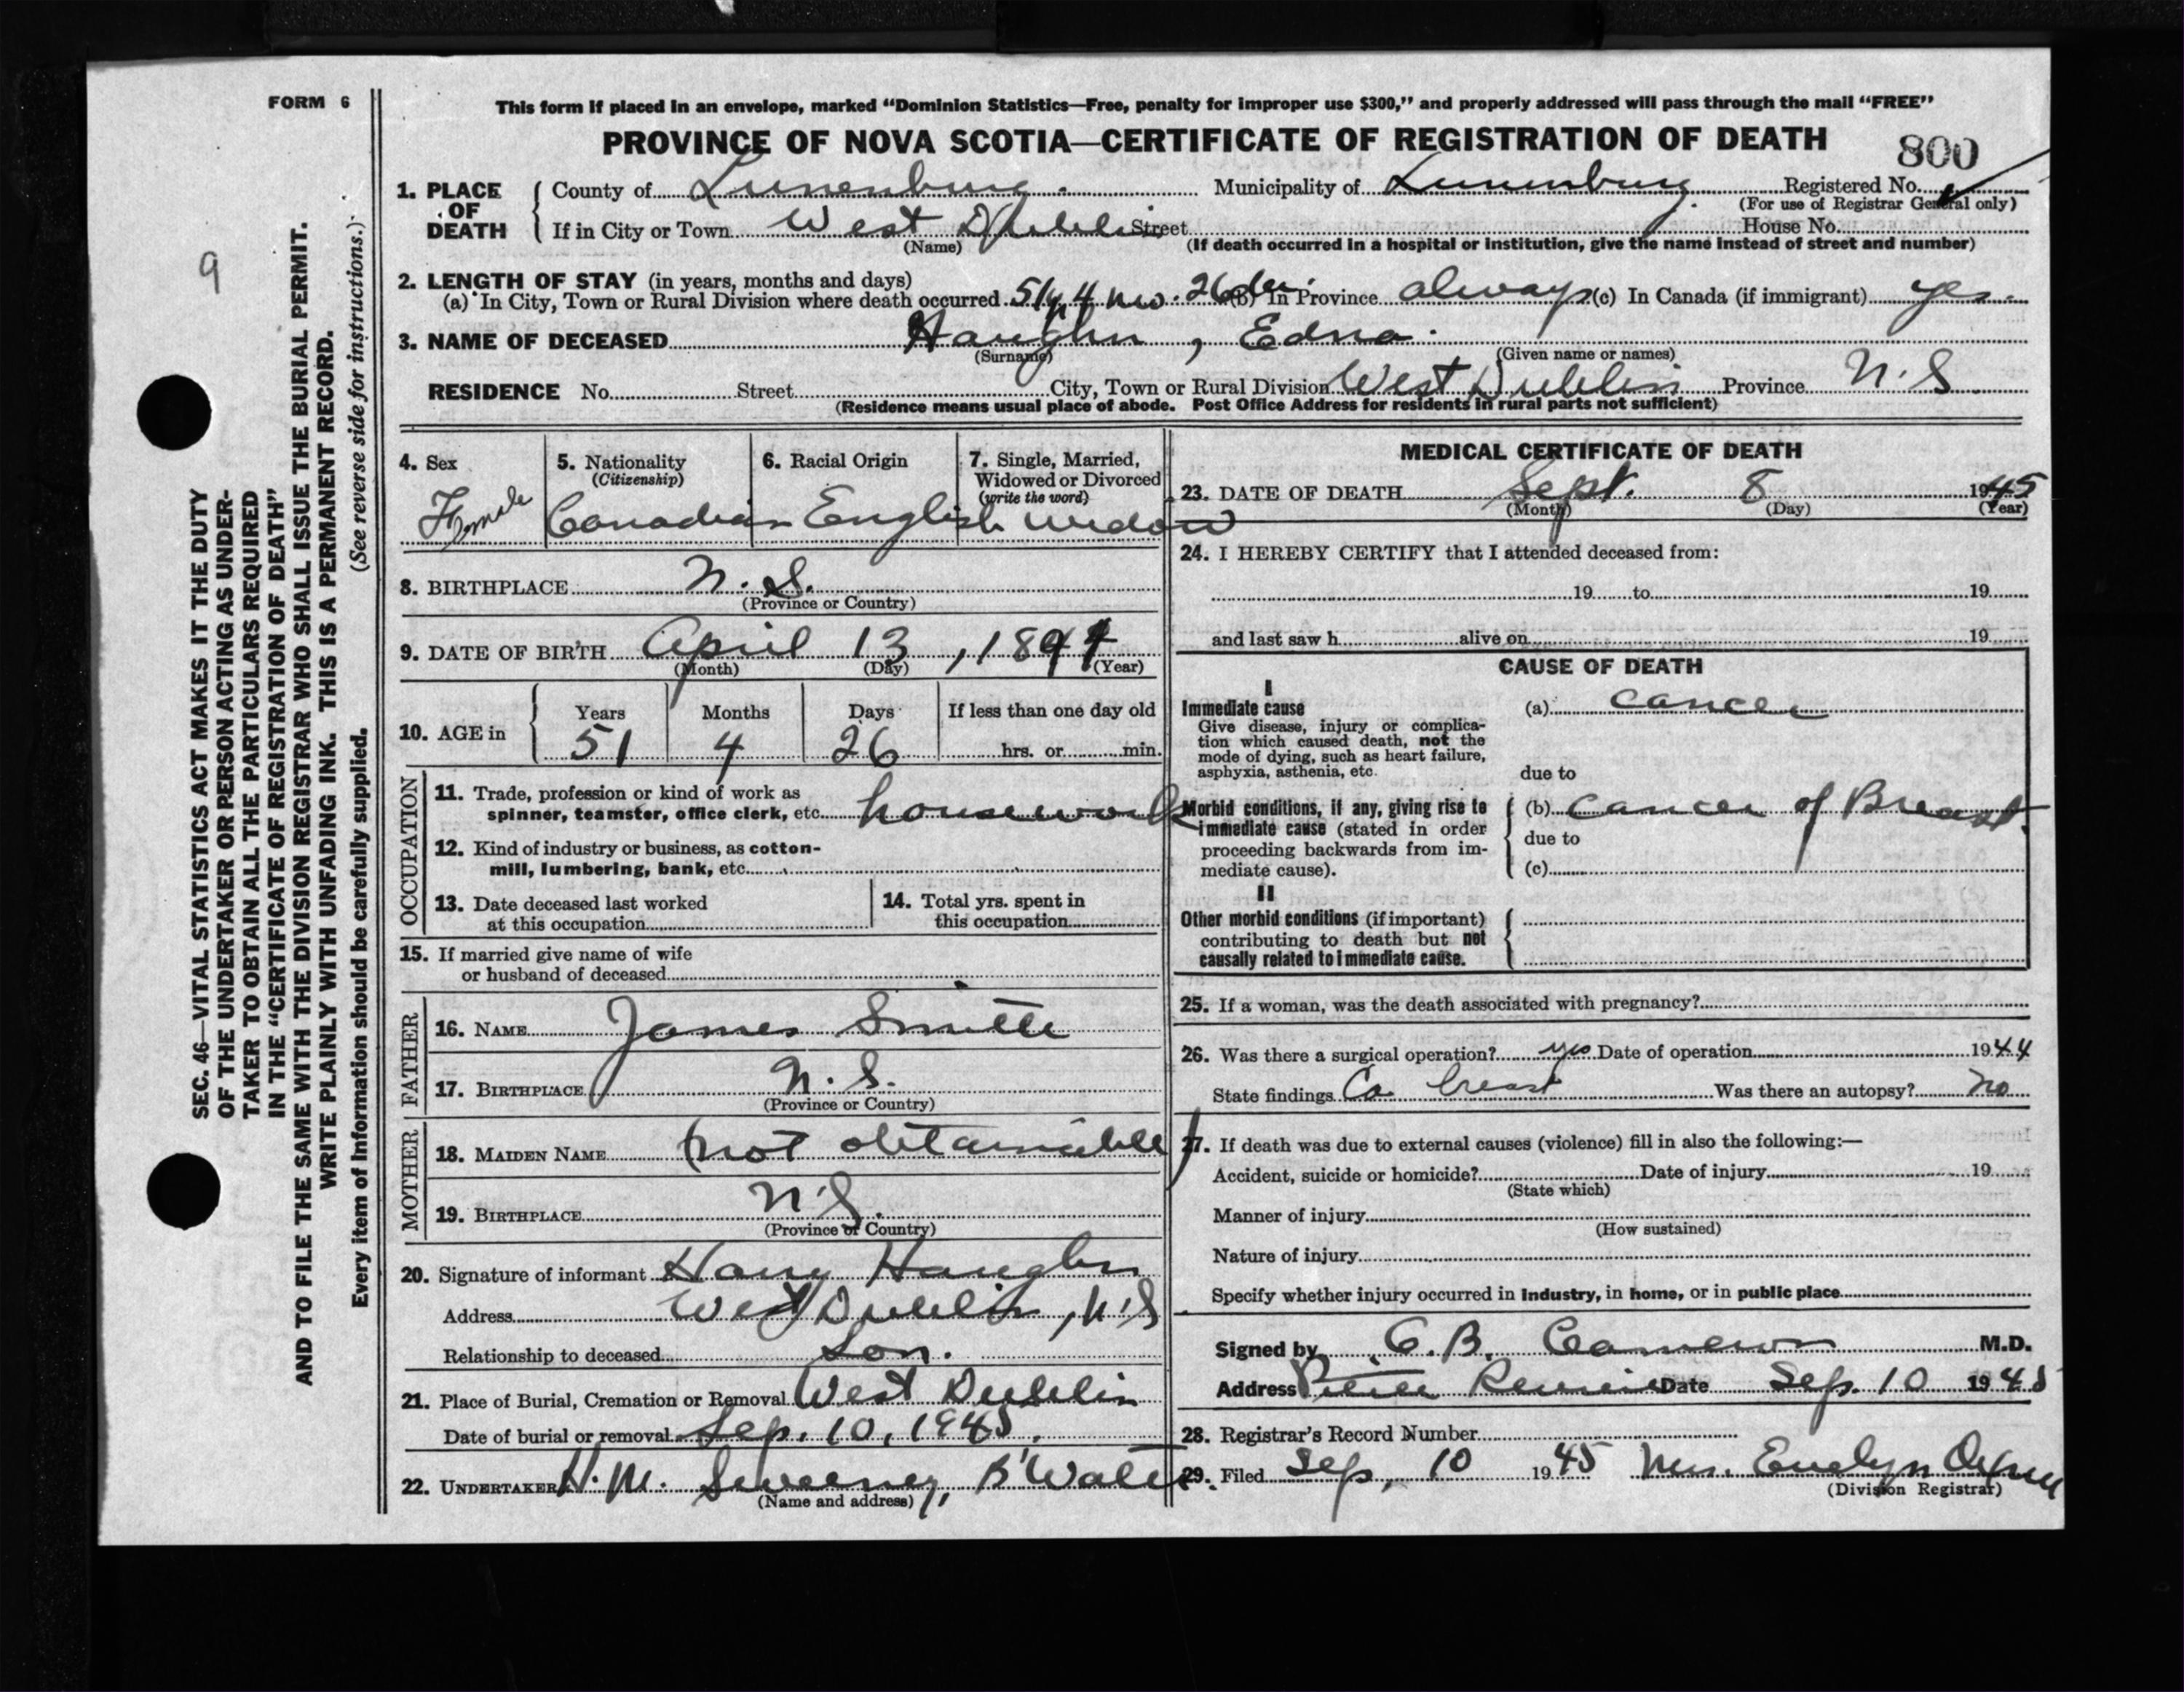 FORM 6
This form if placed in an envelope, marked “Dominion Statistics—Free, penalty for improper use $300,” and properly addressed will pass through the mail “FREE”
PROVINCE OF NOVA SCOTIA—CERTIFICATE OF REGISTRATION OF DEATH
800
1. PLACE OF DEATH
County of Lunenburg. Municipality of Lunenburg. Registered No.
(For use of Registrar General only)
If in City or Town West Dublin Street House No.
(Name) (If death occurred in a hospital or institution, give the name instead of street and number)
2. LENGTH OF STAY (in years, months and days)
(a) In City, Town or Rural Division where death occurred 51 y. 4 mo. 26 (b) In Province always (c) In Canada (if immigrant) yes.
3. NAME OF DECEASED Haughn, Edna.
(Surname) (Given name or names)
RESIDENCE No. Street City, Town or Rural Division West Dublin Province N.S
(Residence means usual place of abode. Post Office Address for residents in rural parts not sufficient)
4. Sex
Female
5. Nationality
(Citizenship)
Canadian
6. Racial Origin
English
7. Single, Married,
Widowed or Divorced
(write the word)
widow
8. BIRTHPLACE N.S.
(Province or Country)
9. DATE OF BIRTH April 13, 1894
(Month) (Day) (Year)
10. AGE in
Years Months Days If less than one day old
51 4 26 hrs. or min.
OCCUPATION
11. Trade, profession or kind of work as
spinner, teamster, office clerk, etc. housework
12. Kind of industry or business, as cotton-
mill, lumbering, bank, etc.
13. Date deceased last worked
at this occupation
14. Total yrs. spent in
this occupation
15. If married give name of wife
or husband of deceased
FATHER
16. NAME James Smith
17. BIRTHPLACE N.S.
(Province or Country)
MOTHER
18. MAIDEN NAME not obtainable
19. BIRTHPLACE N.S.
(Province or Country)
20. Signature of informant Harry Haughn
Address West Dublin, N.S
Relationship to deceased Son.
21. Place of Burial, Cremation or Removal West Dublin
Date of burial or removal Sep. 10, 1945.
22. UNDERTAKER H.M. Sweeney, B'Water
(Name and address)
MEDICAL CERTIFICATE OF DEATH
23. DATE OF DEATH Sept. 8 1945
(Month) (Day) (Year)
24. I HEREBY CERTIFY that I attended deceased from:
19 to 19
and last saw h alive on 19
CAUSE OF DEATH
I
Immediate cause
Give disease, injury or complica-
tion which caused death, not the
mode of dying, such as heart failure,
asphyxia, asthenia, etc.
(a) Cancer
due to
Morbid conditions, if any, giving rise to
immediate cause (stated in order
proceeding backwards from im-
mediate cause).
(b) Cancer of Breast.
due to
(c)
II
Other morbid conditions (if important)
contributing to death but not
causally related to immediate cause.
25. If a woman, was the death associated with pregnancy?
26. Was there a surgical operation? yes Date of operation 1944
State findings Ca breast Was there an autopsy? no
27. If death was due to external causes (violence) fill in also the following:—
Accident, suicide or homicide? Date of injury 19
(State which)
Manner of injury
(How sustained)
Nature of injury
Specify whether injury occurred in industry, in home, or in public place
Signed by C.B. Cameron M.D.
Address Petite Riviere Date Sep. 10 1945
28. Registrar's Record Number
29. Filed Sep. 10 1945 Mrs. Evelyn
(Division Registrar)
9
SEC. 46—VITAL STATISTICS ACT MAKES IT THE DUTY
OF THE UNDERTAKER OR PERSON ACTING AS UNDER-
TAKER TO OBTAIN ALL THE PARTICULARS REQUIRED
IN THE “CERTIFICATE OF REGISTRATION OF DEATH”
AND TO FILE THE SAME WITH THE DIVISION REGISTRAR WHO SHALL ISSUE THE BURIAL PERMIT.
WRITE PLAINLY WITH UNFADING INK. THIS IS A PERMANENT RECORD.
Every item of information should be carefully supplied. (See reverse side for instructions.)